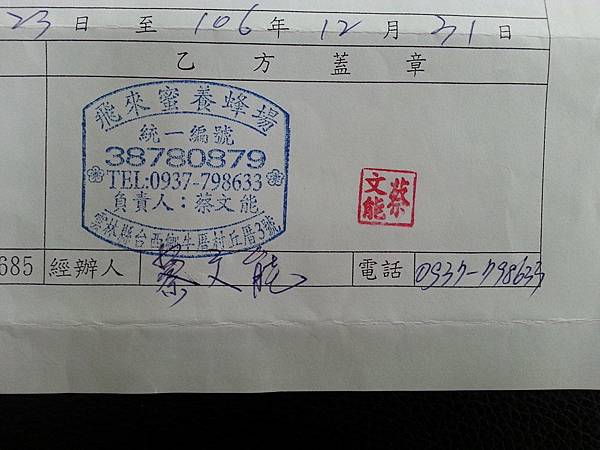 23 日 至 106 年 12 月 31 日
乙 方 蓋 章
飛來蜜養蜂場
統一編號
38780879
TEL:0937-798633
負責人：蔡文能
雲林縣台西鄉牛厝村丘厝3號
蔡文能
685 經辦人 蔡文能 電話 0937-798633